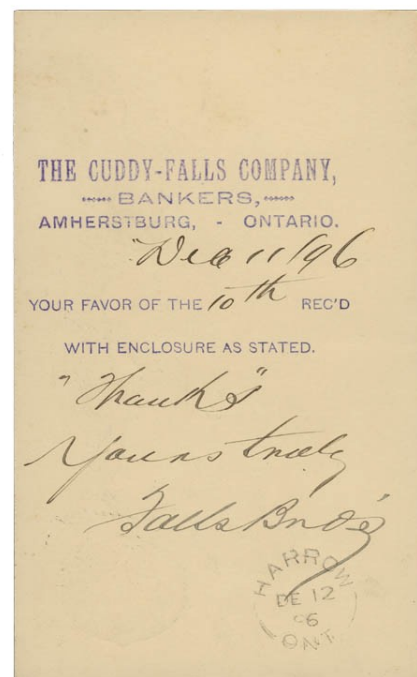 THE CUDDY-FALLS COMPANY,
BANKERS,
AMHERSTBURG, - ONTARIO.
Dec 11/96
YOUR FAVOR OF THE 10th REC'D
WITH ENCLOSURE AS STATED.
"Thanks"
Yours truly
Falls Bros
HARROW
DE 12
96
ONT.